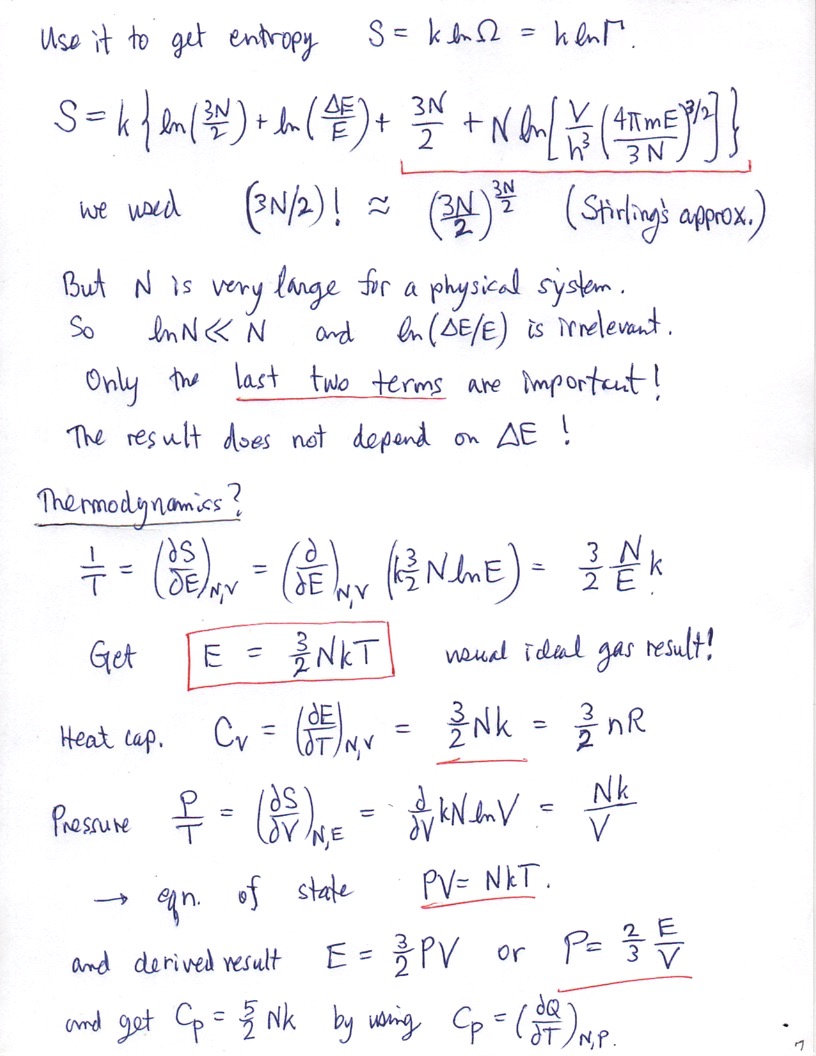 Use it to get entropy S = k ln Ω = k ln Γ.
S = k { ln(3N/2) + ln(ΔE/E) + 3N/2 + N ln[ V/h³ (4πmE/3N)^3/2 ] }
we used (3N/2)! ≈ (3N/2)^3N/2 (Stirling's approx.)
But N is very large for a physical system.
So ln N << N and ln(ΔE/E) is irrelevant.
Only the last two terms are important!
The result does not depend on ΔE !
Thermodynamics?
1/T = (∂S/∂E)_N,V = (∂/∂E)_N,V (k 3/2 N ln E) = 3/2 N/E k
Get E = 3/2 NkT usual ideal gas result!
Heat cap. C_V = (∂E/∂T)_N,V = 3/2 Nk = 3/2 nR
Pressure P/T = (∂S/∂V)_N,E = ∂/∂V kN ln V = Nk/V
→ eqn. of state PV = NkT.
and derived result E = 3/2 PV or P = 2/3 E/V
and get C_p = 5/2 Nk by using C_p = (∂Q/∂T)_N,P.
7